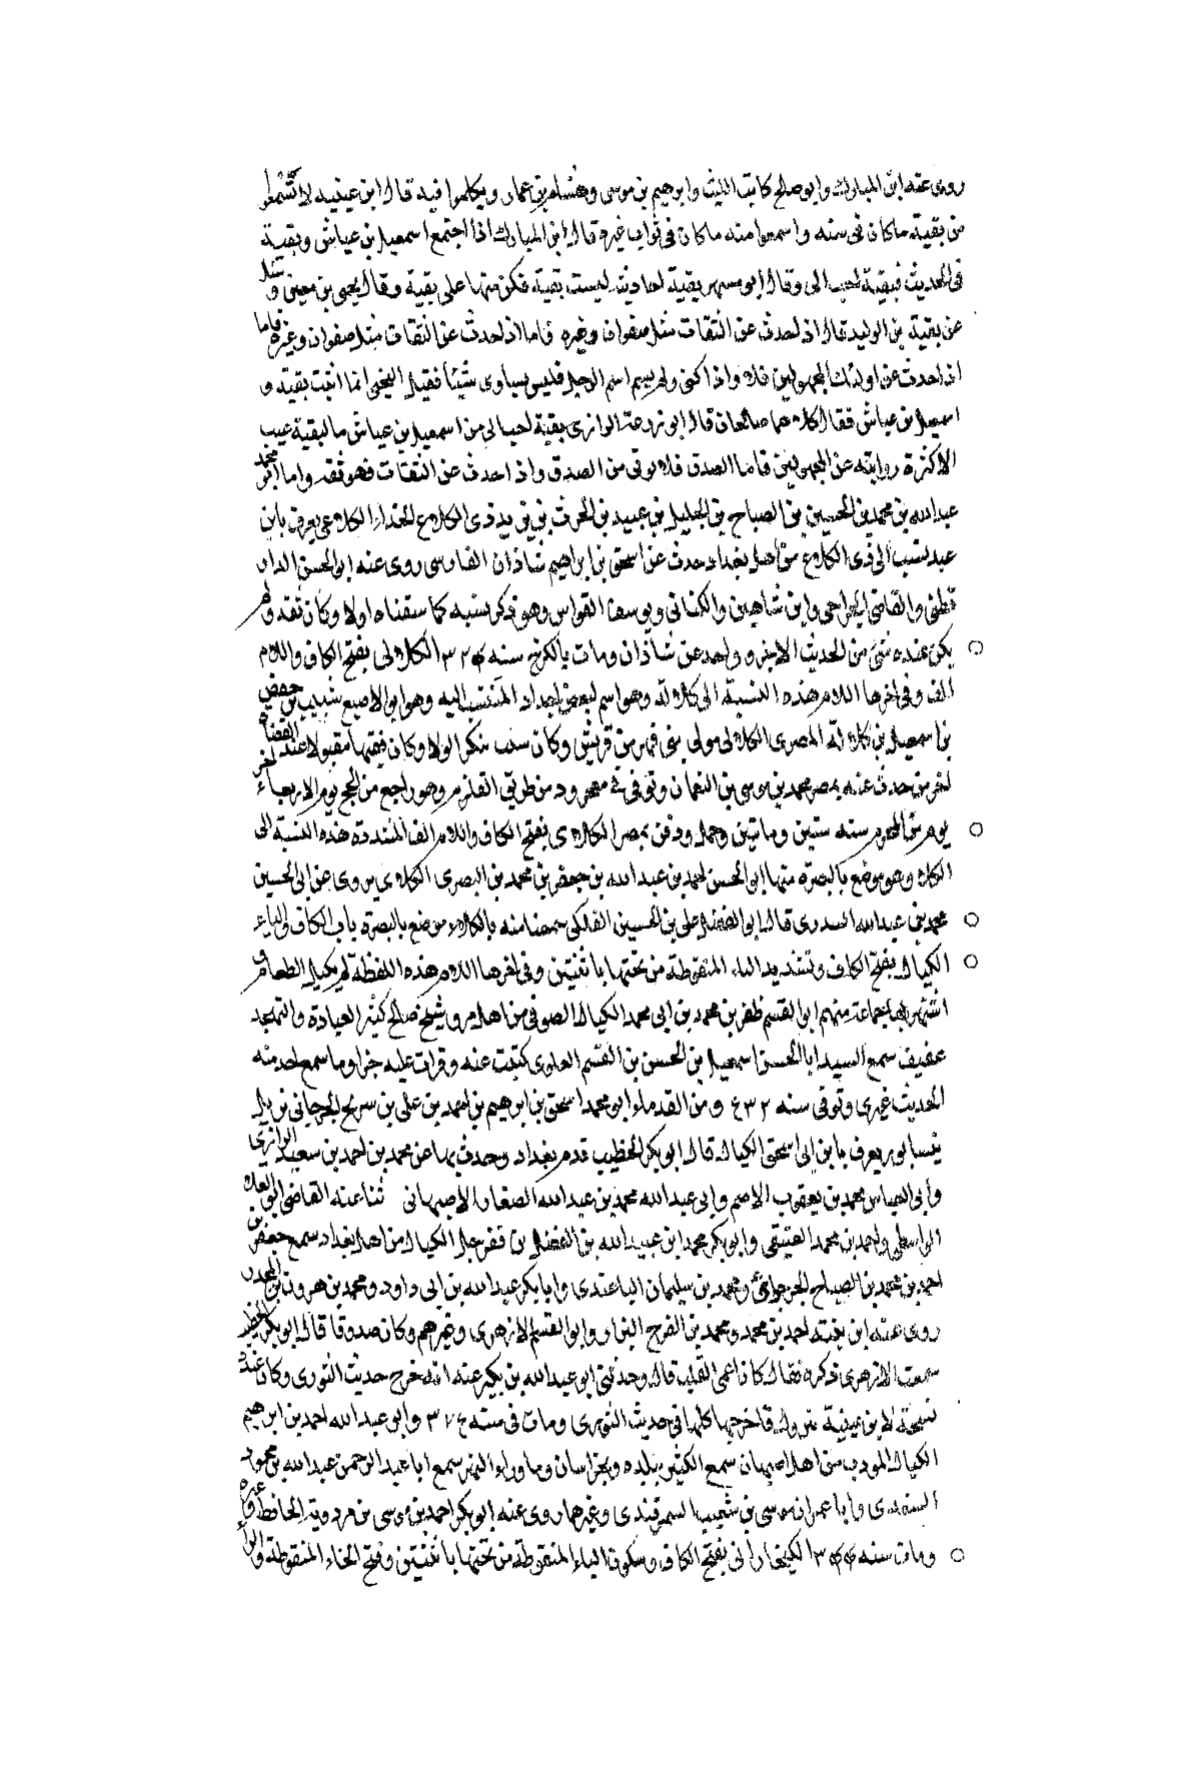 روى عنه ابن المبارك وابو صالح كاتب الليث وابرهيم بن موسى وهشام بن عمار وتكلموا فيه قال ابن عيينه لا تسمعوا
من بقية ما كان فى سنه واسمعوا منه ما كان فى ثواب غيره قال ابن المبارك اذا اجتمع اسمعيل بن عياش وبقية
فى الحديث فبقية احب الى وقال ابو مسهر بقية احاديثه ليست بقية فكن منها على بقية وقال يحيى بن معين وسئل
عن بقية بن الوليد قال اذا حدث عن الثقات مثل صفوان وغيره فاما اذا حدث عن الثقات مثل صفوان وغيره فاما
اذا حدث عن اولئك المجهولين فلا واذا كنى ولم يسم اسم الرجل فليس يساوى شيئا فقيل ليحيى ايما اثبت بقية و
اسمعيل بن عياش فقال كلاهما صالحان قال ابو زرعة الرازى بقية احب الى من اسمعيل بن عياش ما لبقية عيب
الا كثرة روايته عن المجهولين فاما الصدق فلا يوتى من الصدق واذا حدث عن الثقات فهو ثقه واما ابو محمد
عبد الله بن محمد بن الحسين بن الصباح بن الخليل بن عبيد بن الحرث بن يزيد ذى الكلاع الكلاعى يعرف بابن
ينسب الى ذى الكلاع من اهل بغداد حدث عن اسحق بن ابراهيم شاذان الفارسى روى عنه ابو الحسن الدار
قطنى والقاضى الجراحى وابن شاهين والكتانى ويوسف القواس وهو ذكر نسبه كما سقناه اولا وكان ثقه ولم
يكن عنده شئ من الحديث الا جزو واحد عن شاذان ومات بالكرخ سنه الكلالى بفتح الكاف واللام
الف وفى اخرها اللام هذه النسبة الى كلاله وهو اسم لبعض اجداد المنتسب اليه وهو ابو الاصبغ شبيب بن حفص
بن اسمعيل بن كلاله المصرى الكلالى مولى بنى فهر من قريش وكان ينكر الولا وكان فقيها مقبولا عند القضاه
اخر من حدث عنه بمصر محمد بن موسى بن النعمان وتوفى فى من طريق القلزم وهو راجع من الحج يوم الاربعاء
يوم من المحرم سنه ستين وماتين وحمل ودفن بمصر الكلاى بفتح الكاف واللام الف المشددة هذه النسبة الى
الكلا وهو موضع بالبصره منها ابو الحسن احمد بن عبد الله بن جعفر بن محمد بن البصرى الكلاى يروى عن ابى الحسين
محمد بن عبد الله السدرى قال ابو الفضل على بن الحسين الفلكى سمعنا منه بالكلاء موضع بالبصرة باب الكاف والياء
الكيال بفتح الكاف وتشديد الياء المنقوطة من تحتها باثنتين وفى اخرها اللام هذه اللفظة لمن يكيل الطعام و
اشتهر بها جماعة منهم ابو القسم ظفر بن محمد بن ابى محمد الكيال الصوفى من اهل مرو شيخ صالح كثير العبادة والتهجد
عفيف سمع السيد ابا الحسن اسمعيل بن الحسن بن القسم العلوى كتبت عنه وقرات عليه جزا وما سمع احد منه
الحديث غيرى وتوفى سنه ومن القدماء ابو محمد اسحق بن ابرهيم بن احمد بن على بن سريج الجرجانى نزيل
نيسابور يعرف بابن ابى اسحق الكيال قال ابو بكر الخطيب قدم بغداد وحدث بها عن محمد بن احمد بن سعيد الرازى
وابى العباس محمد بن يعقوب الاصم وابى عبد الله محمد بن عبد الله الصفار الاصبهانى ثنا عنه القاضى ابو العلا
الواسطى واحمد بن محمد العتيقى وابو بكر محمد ابن عبيد الله بن الفضل بن قفرجل الكيال من اهل بغداد سمع جعفر بن
احمد بن محمد بن الصباح الجرجرائى ومحمد بن سليمان الباغندى وابا بكر عبد الله بن ابى داود ومحمد بن هرون بن المجدر
روى عنه ابن بنته احمد بن محمد ومحمد بن الفرج البزار وابو القسم الازهرى وغيرهم وكان صدوقا قال ابو بكر الخطيب
سمعت الازهرى ذكره فقال كان اعمى القلب قال وحدثنى ابو عبد الله بن بكير عنه انه خرج حديث الثورى وكان عنده
نسخة لابن عيينة بنزول فاخرجها كلها فى حديث الثورى ومات فى سنه وابو عبد الله احمد بن ابرهيم
الكيال المودب من اهل اصبهان سمع الكثير ببلده وبخراسان وما وراء النهر سمع ابا عبد الرحمن عبد الله بن محمود
السعدى وابا عمران موسى بن شعيب السمرقندى وغيرهما روى عنه ابو بكر احمد بن موسى بن مردويه الحافظ وغيره
ومات سنه الكيخارانى بفتح الكاف وسكون الياء المنقوطة من تحتها باثنتين وفتح الخاء المنقوطة والرا